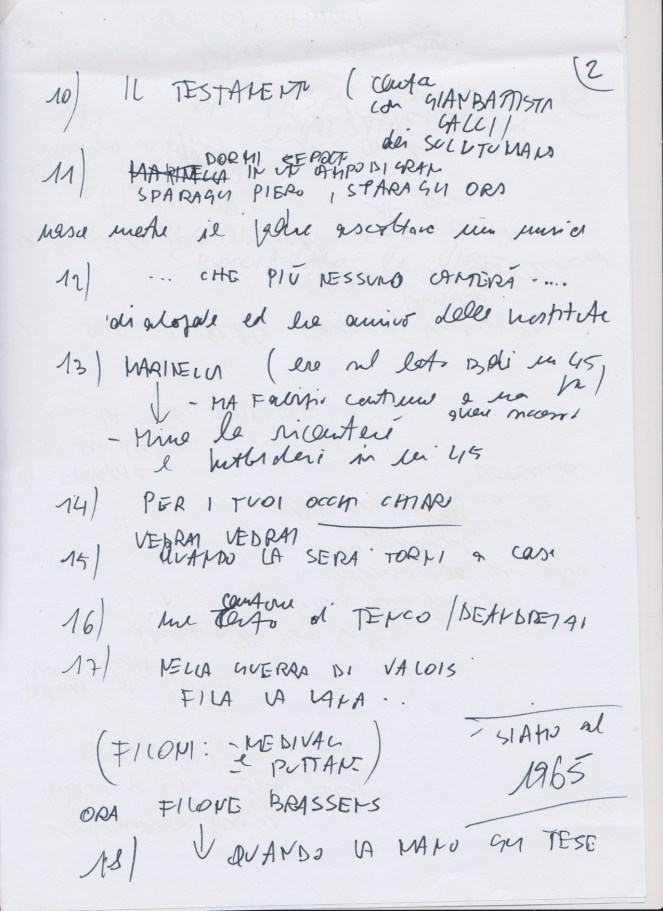 2
10) IL TESTAMENTO (canta
con GIANBATTISTA
GALLI /
dei SULUTUMANA
11) MARINELLA DORMI SEPOLT IN UN CAMPO DI GRAN
SPARAGLI PIERO, SPARAGLI ORA
nasce mentre il padre ascoltava una musica
12) ... CHE PIÙ NESSUNO CANTERÀ ....
dialogale ed ha amivo delle prostitute
13) MARINELLA (era sul lato B di un 45
- MA Fabrizio continua a non
avere successo
- Mina la ricanterà
e in un 45
14) PER I TUOI OCCHI CHIARI
VEDRAI VEDRAI
15) QUANDO LA SERA TORNI a casa
16) una canzone di TENCO / DEANDRE
17) NELLA GUERRA DI VALOIS
FILA LA LANA ..
(FILONI: - MEDIVAL
e PUTTANE)
- SIAMO al
1965
ORA FILONE BRASSENS
18) QUANDO LA MANO GLI TESE